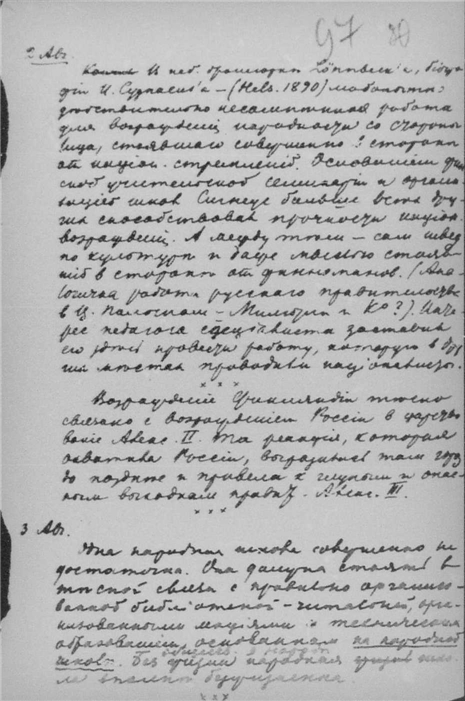 97 80
2 Авг.
Кончил и неб. брошюрки Lönnbeck'а, біогра
фіи И. Сугнаеуса – (Hels. 1890)
действительно несомнѣнная работа
для возрожденія народности со стороны
лица, стоявшаго совершенно въ сторонѣ
от націон. стремленій. Основаніем фин
ской учительской семинаріи и органи
заціей школ Сигнеус больше всѣх дру
гих способствовал прочности націон.
возрожденія. А между тѣм – сам швед
по культурѣ и даже мыслью стояв
шій в сторонѣ от финномановъ. (Ана
логичная работа русскаго правительства
в Ц. Польском – Милютин и Ко?). Инте
рес педагога спеціалиста заставил
его здѣсь провести работу, которую в дру
гих мѣстах проводили націоналисты.
× × ×
Возрожденіе Финляндіи тѣсно
связано с возрожденіем Россіи в царство
ваніе Алекс. II. Та реакція, которая
охватила Россію, выразилась там гораз
до позднѣе и привела к глупым и опас
ным выходкам правит. Алекс. III.
× × ×
3 Авг.
Одна народная школа совершенно не
достаточна. Она должна стоять в
тѣсной связи с правильно организо
ванной библіотекой-читальней, орга
низованными лекціями и техническим
образованіем, основанном на народной
школѣ. Без связи народная школа
вполнѣ
× × ×